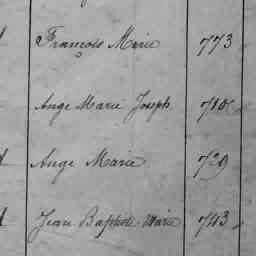 François Marie 773
Ange Marie Joseph 710
Ange Marie 729
Jean Baptiste Marie 743